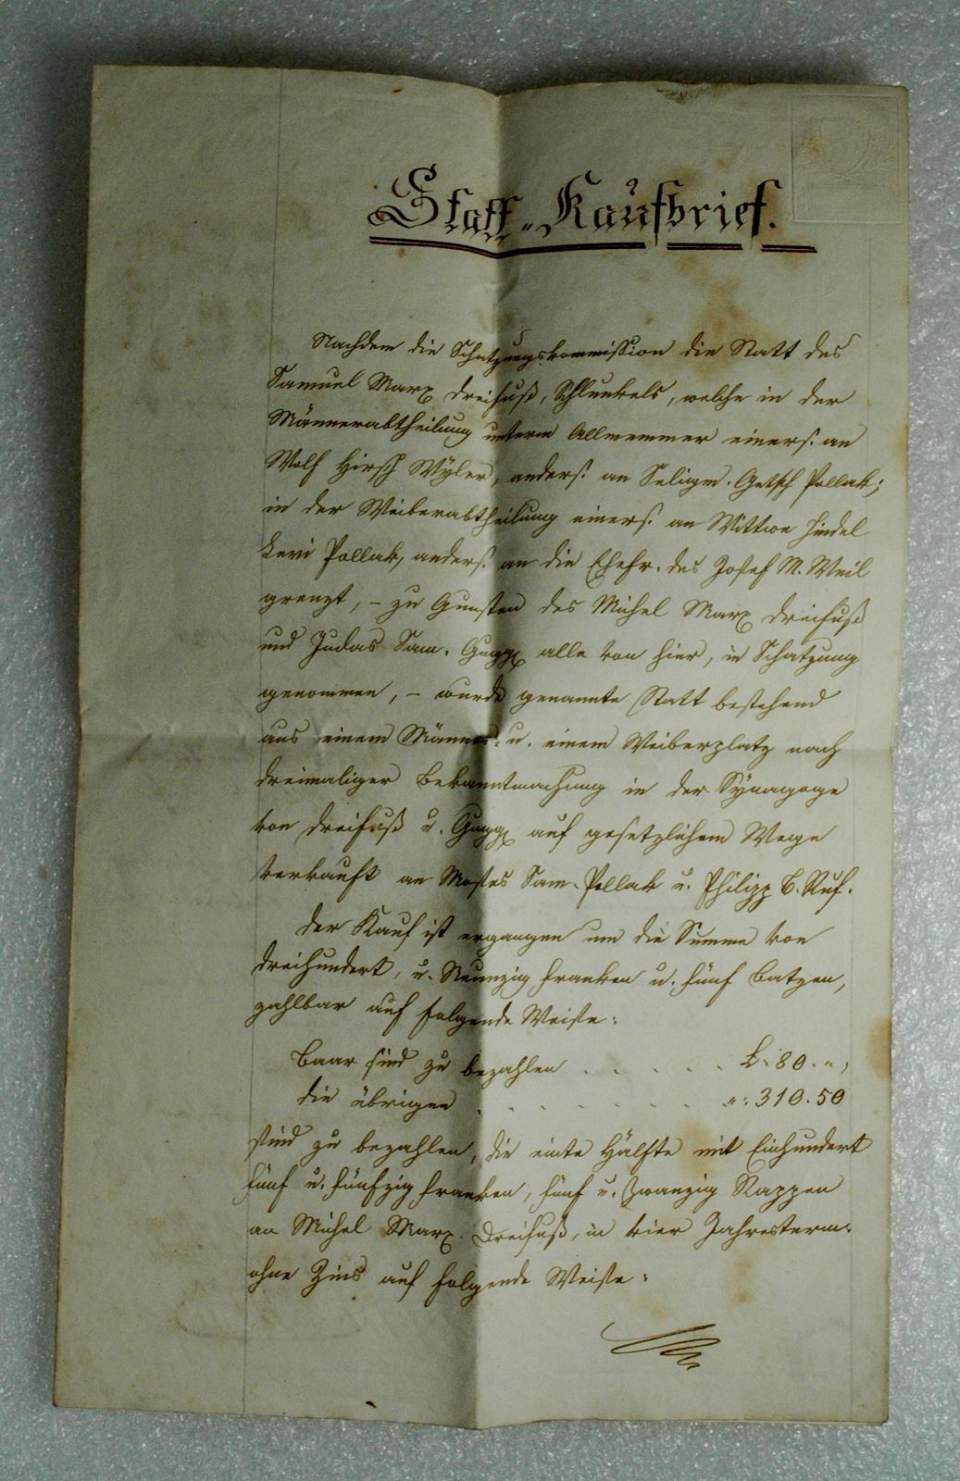 Statt-Kaufbrief.
Nachdem die Schatzungskommission die Statt des
Samuel Marx Dreifuß, Schlunkels, welche in der
Männerabtheilung unterm Allmemmer einers. an
Wolf Hirsch Wyler, anders. an Seligm. Getsch Pollak;
in der Weiberabtheilung einers. an Wittwe Hindel
Levi Pollak, anders. an die Ehefr. des Josef M. Weil
grenzt, – zu Gunsten des Michel Marx Dreifuß
und Judas Sam. Gugg alle von hier, in Schatzung
genommen, – wurde genannte Statt bestehend
aus einem Männer- u. einem Weiberplatz nach
dreimaliger Bekanntmachung in der Synagoge
von Dreifuß u. Gugg auf gesetzlichem Wege
verkauft an Moses Sam. Pollak u. Philipp B. Ruf.
Der Kauf ist ergangen um die Summe von
dreihundert, u. Neunzig Franken u. fünf Batzen,
zahlbar auf folgende Weise:
Baar sind zu bezahlen . . . . . 80. „ ;
die übrigen . . . . . . . „: 310.50
sind zu bezahlen, die einte Hälfte mit Einhundert
fünf u. fünfzig Franken, fünf u. zwanzig Rappen
an Michel Marx Dreifuß, in vier Jahresterm.
ohne Zins auf folgende Weise: